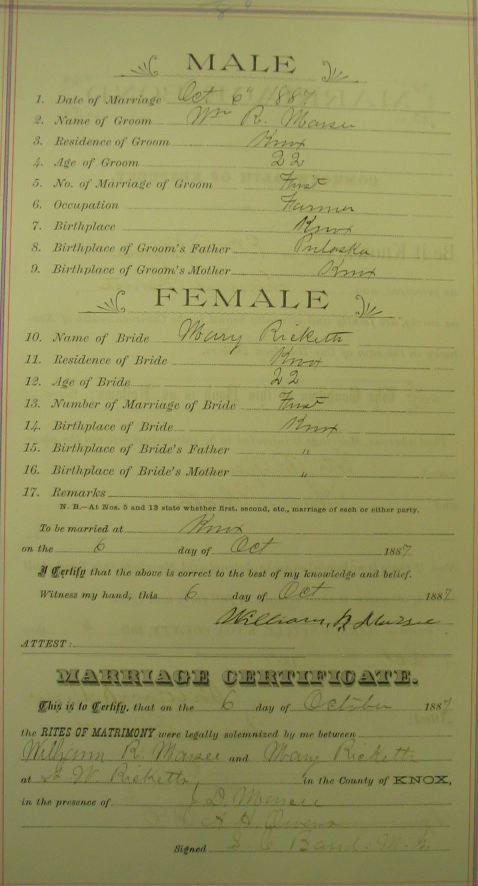 MALE
1. Date of Marriage Oct 6" 1887
2. Name of Groom Wm R. Marsee
3. Residence of Groom Knox
4. Age of Groom 22
5. No. of Marriage of Groom First
6. Occupation Farmer
7. Birthplace Knox
8. Birthplace of Groom's Father Puloska
9. Birthplace of Groom's Mother Knox
FEMALE
10. Name of Bride Mary Ricketts
11. Residence of Bride Knox
12. Age of Bride 22
13. Number of Marriage of Bride First
14. Birthplace of Bride Knox
15. Birthplace of Bride's Father "
16. Birthplace of Bride's Mother "
17. Remarks
N. B.—At Nos. 5 and 13 state whether first, second, etc., marriage of each or either party.
To be married at Knox
on the 6 day of Oct 1887
I Certify that the above is correct to the best of my knowledge and belief.
Witness my hand, this 6 day of Oct 1887
William, R Marsee
ATTEST:
MARRIAGE CERTIFICATE.
This is to Certify, that on the 6 day of October 1887
the RITES OF MATRIMONY were legally solemnized by me between
William R. Marsee and Mary Ricketts
at W. Ricketts in the County of KNOX,
in the presence of J. D. Marsee
H. Owens
Signed